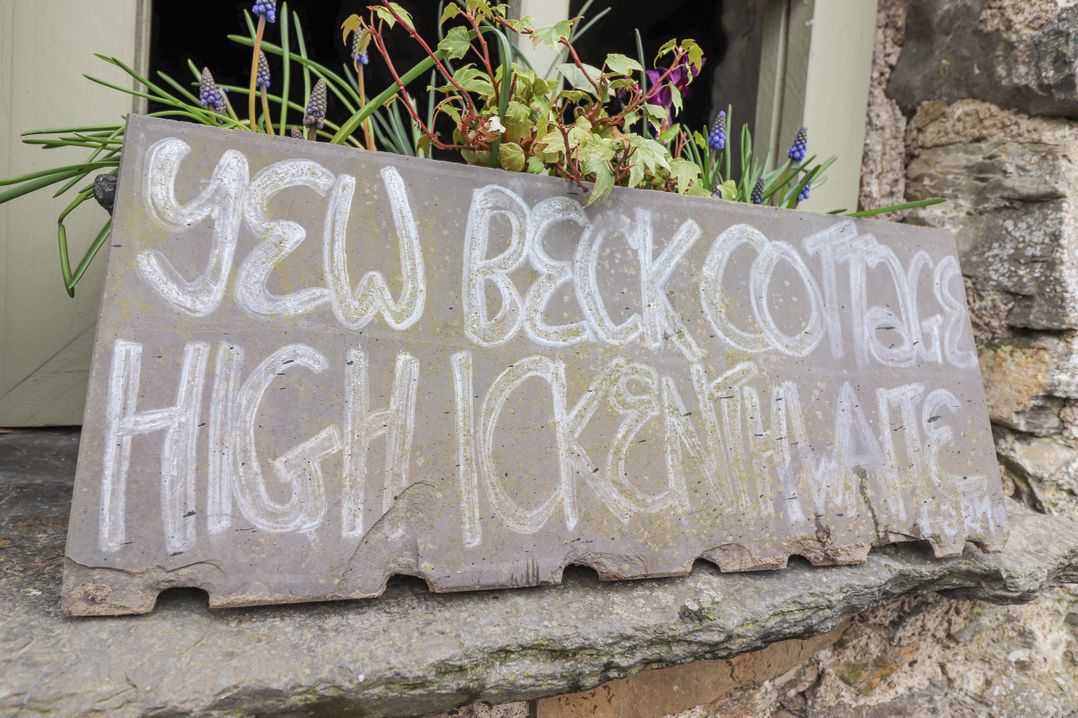 YEW BECK COTTAGE
HIGH ICKENTHWAITE